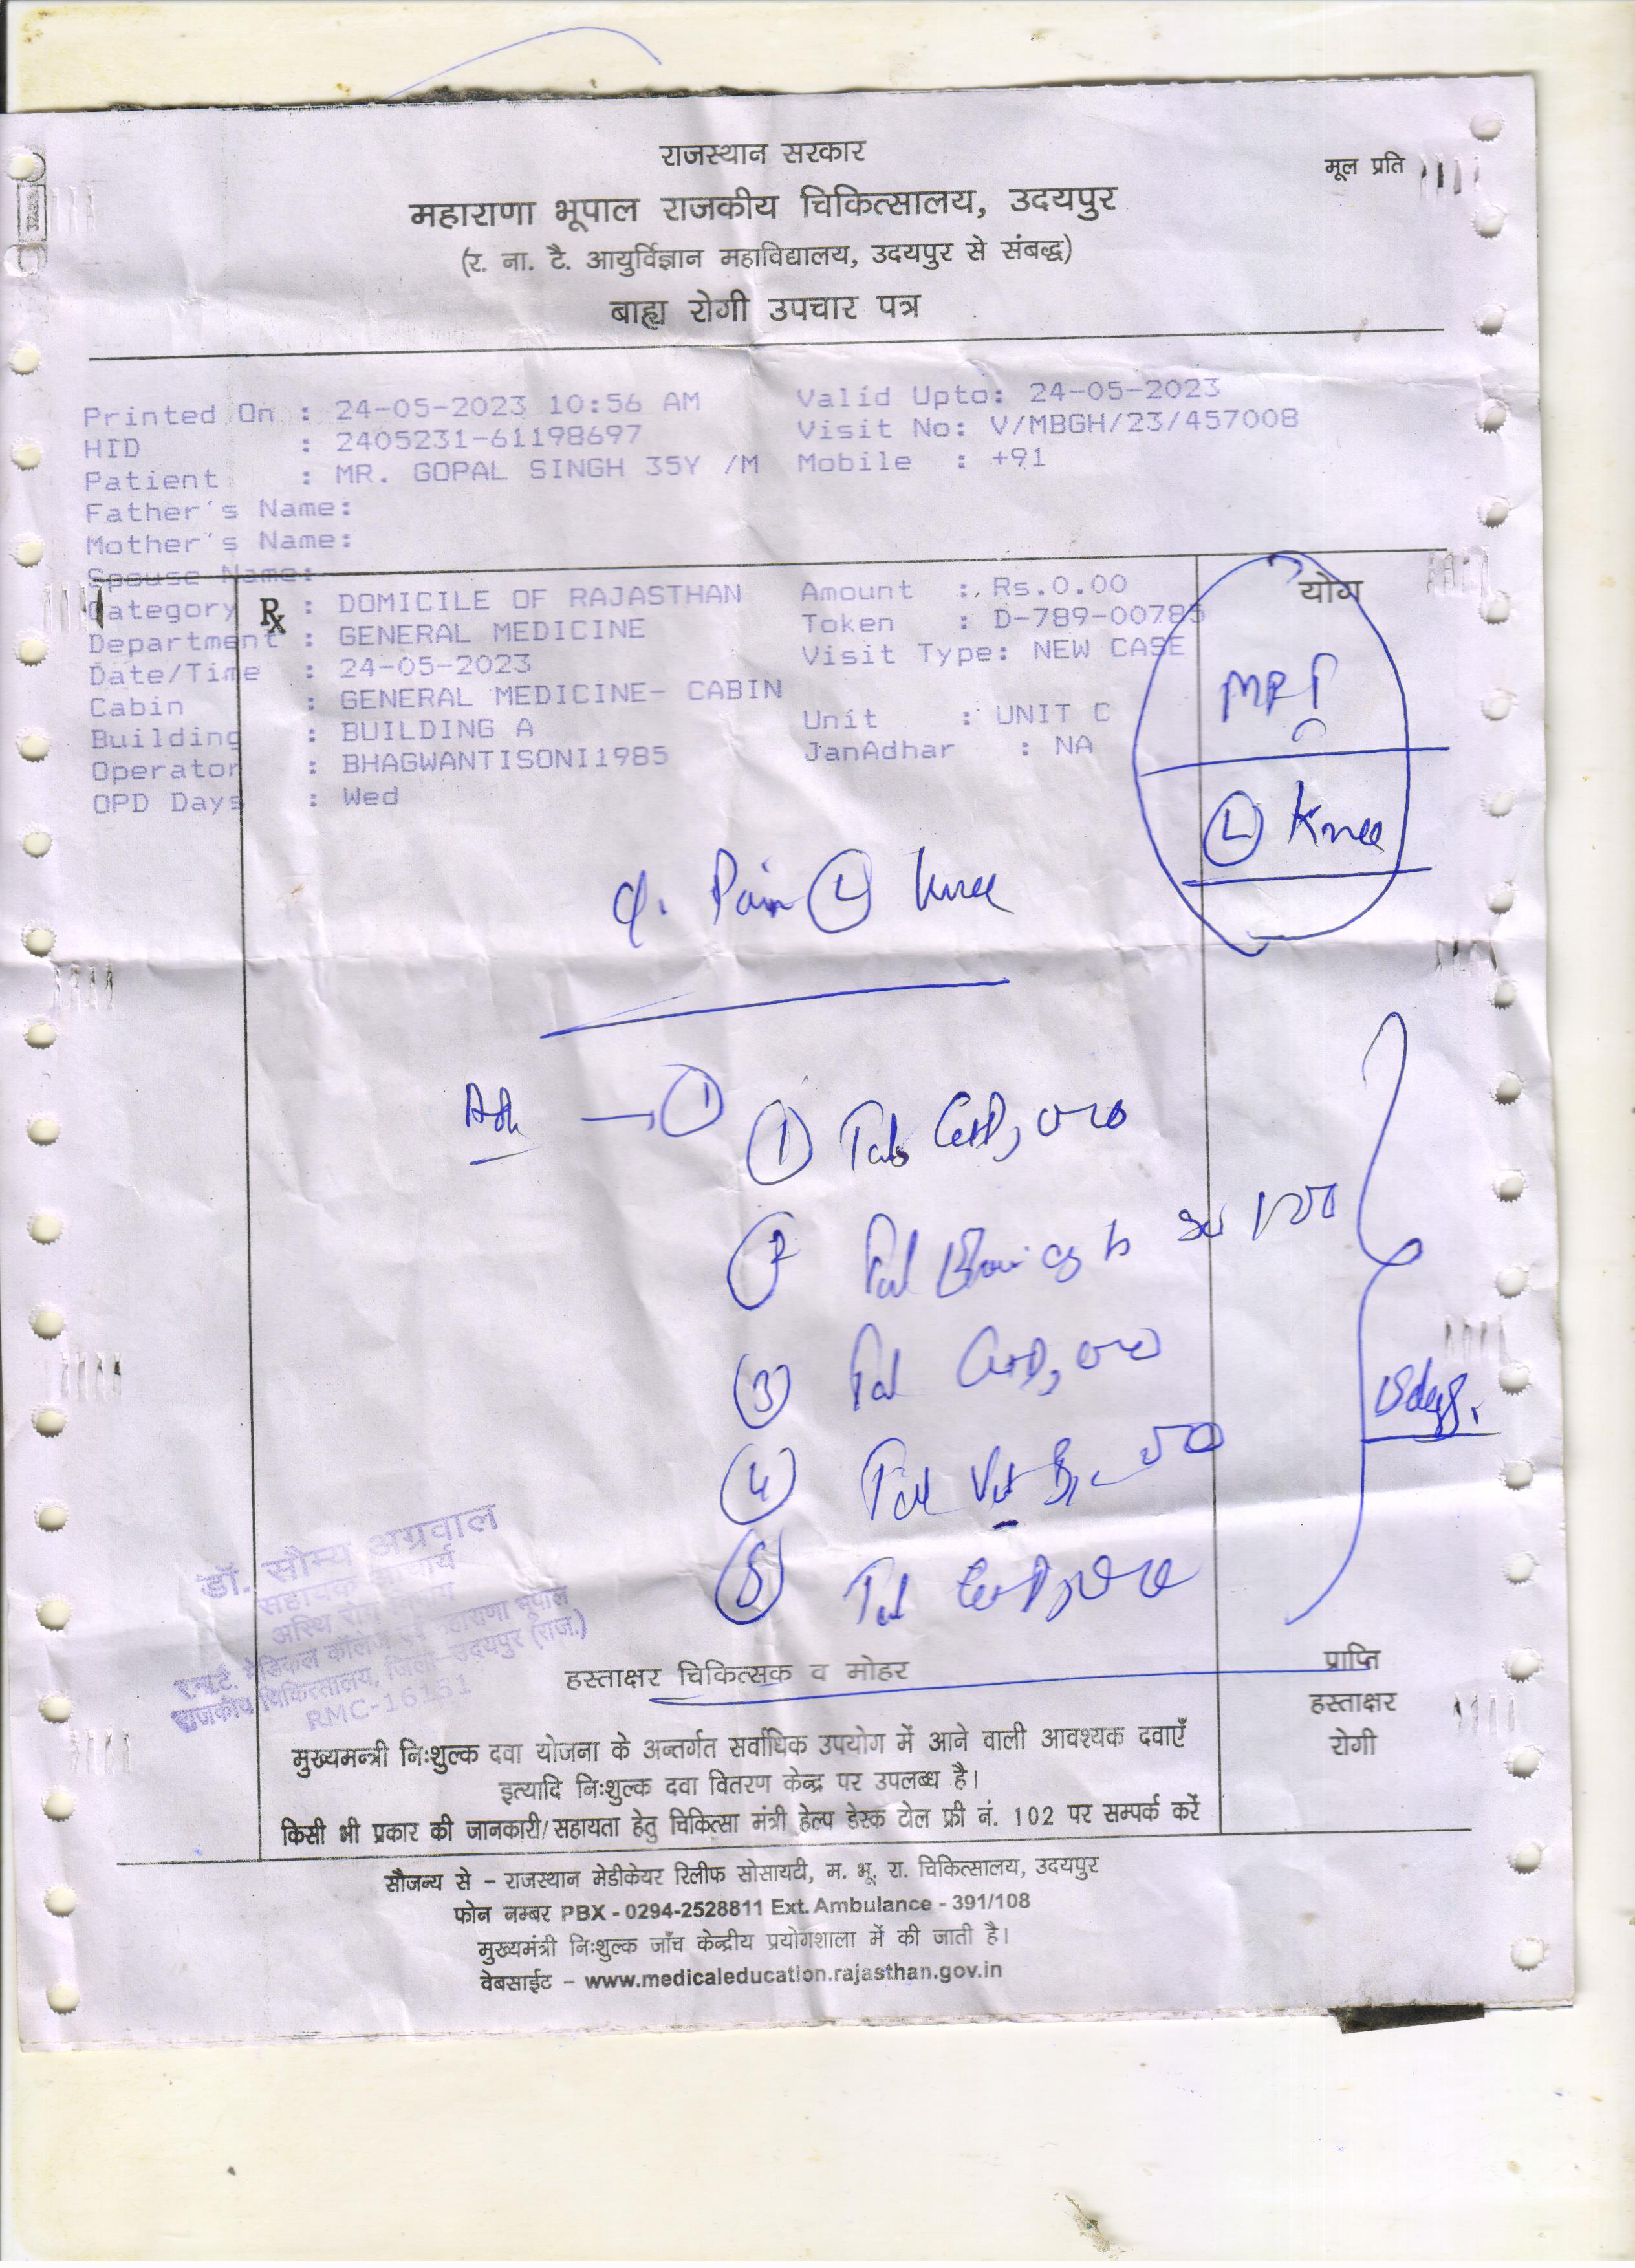 राजस्थान सरकार
मूल प्रति
महाराणा भूपाल राजकीय चिकित्सालय, उदयपुर
(र. ना. टै. आयुर्विज्ञान महाविद्यालय, उदयपुर से संबद्ध)
बाह्य रोगी उपचार पत्र
Printed On : 24-05-2023 10:56 AM Valid Upto: 24-05-2023
HID : 2405231-61198697 Visit No: V/MBGH/23/457008
Patient : MR. GOPAL SINGH 35Y /M Mobile : +91
Father's Name:
Mother's Name:
Spouse Name:
Category : DOMICILE OF RAJASTHAN Amount : Rs.0.00
Rx
योग
Department : GENERAL MEDICINE Token : D-789-00785
Date/Time : 24-05-2023 Visit Type: NEW CASE
Cabin : GENERAL MEDICINE- CABIN
Building : BUILDING A Unit : UNIT C
Operator : BHAGWANTISONI1985 JanAdhar : NA
OPD Days : Wed
MRI
L Knee
Pain L Knee
1
1 Tab
2 Tab
3 Tab
4 Tab
5 Tab
डॉ. सौम्य अग्रवाल
सहायक आचार्य
अस्थि रोग विभाग
र.ना.टै. मेडिकल कॉलेज एवं महाराणा भूपाल
राजकीय चिकित्सालय, जिला-उदयपुर (राज.)
RMC-16151
हस्ताक्षर चिकित्सक व मोहर
प्राप्ति
हस्ताक्षर
रोगी
मुख्यमन्त्री निःशुल्क दवा योजना के अन्तर्गत सर्वाधिक उपयोग में आने वाली आवश्यक दवाएँ
इत्यादि निःशुल्क दवा वितरण केन्द्र पर उपलब्ध है।
किसी भी प्रकार की जानकारी/सहायता हेतु चिकित्सा मंत्री हेल्प डेस्क टोल फ्री नं. 102 पर सम्पर्क करें
सौजन्य से - राजस्थान मेडीकेयर रिलीफ सोसायटी, म. भू. रा. चिकित्सालय, उदयपुर
फोन नम्बर PBX - 0294-2528811 Ext. Ambulance - 391/108
मुख्यमंत्री निःशुल्क जाँच केन्द्रीय प्रयोगशाला में की जाती है।
वेबसाईट - www.medicaleducation.rajasthan.gov.in